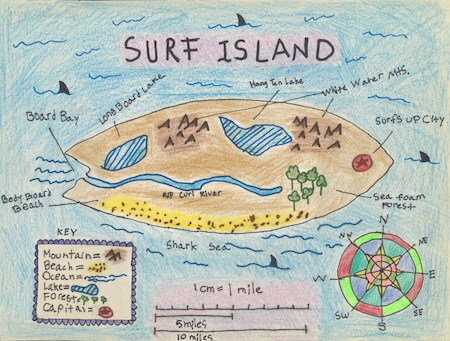 SURF ISLAND
Hang Ten Lake
White Water Mts.
Long Board Lake
Board Bay
Surf's UP City
Body Board
Beach
RIP Curl River
Sea foam
Forest
Shark Sea
KEY
Mountain=
Beach=
Ocean=
Lake=
Forest=
Capital=
1cm = 1 mile
5 miles
10 miles
N
NE
E
SE
S
SW
W
NW